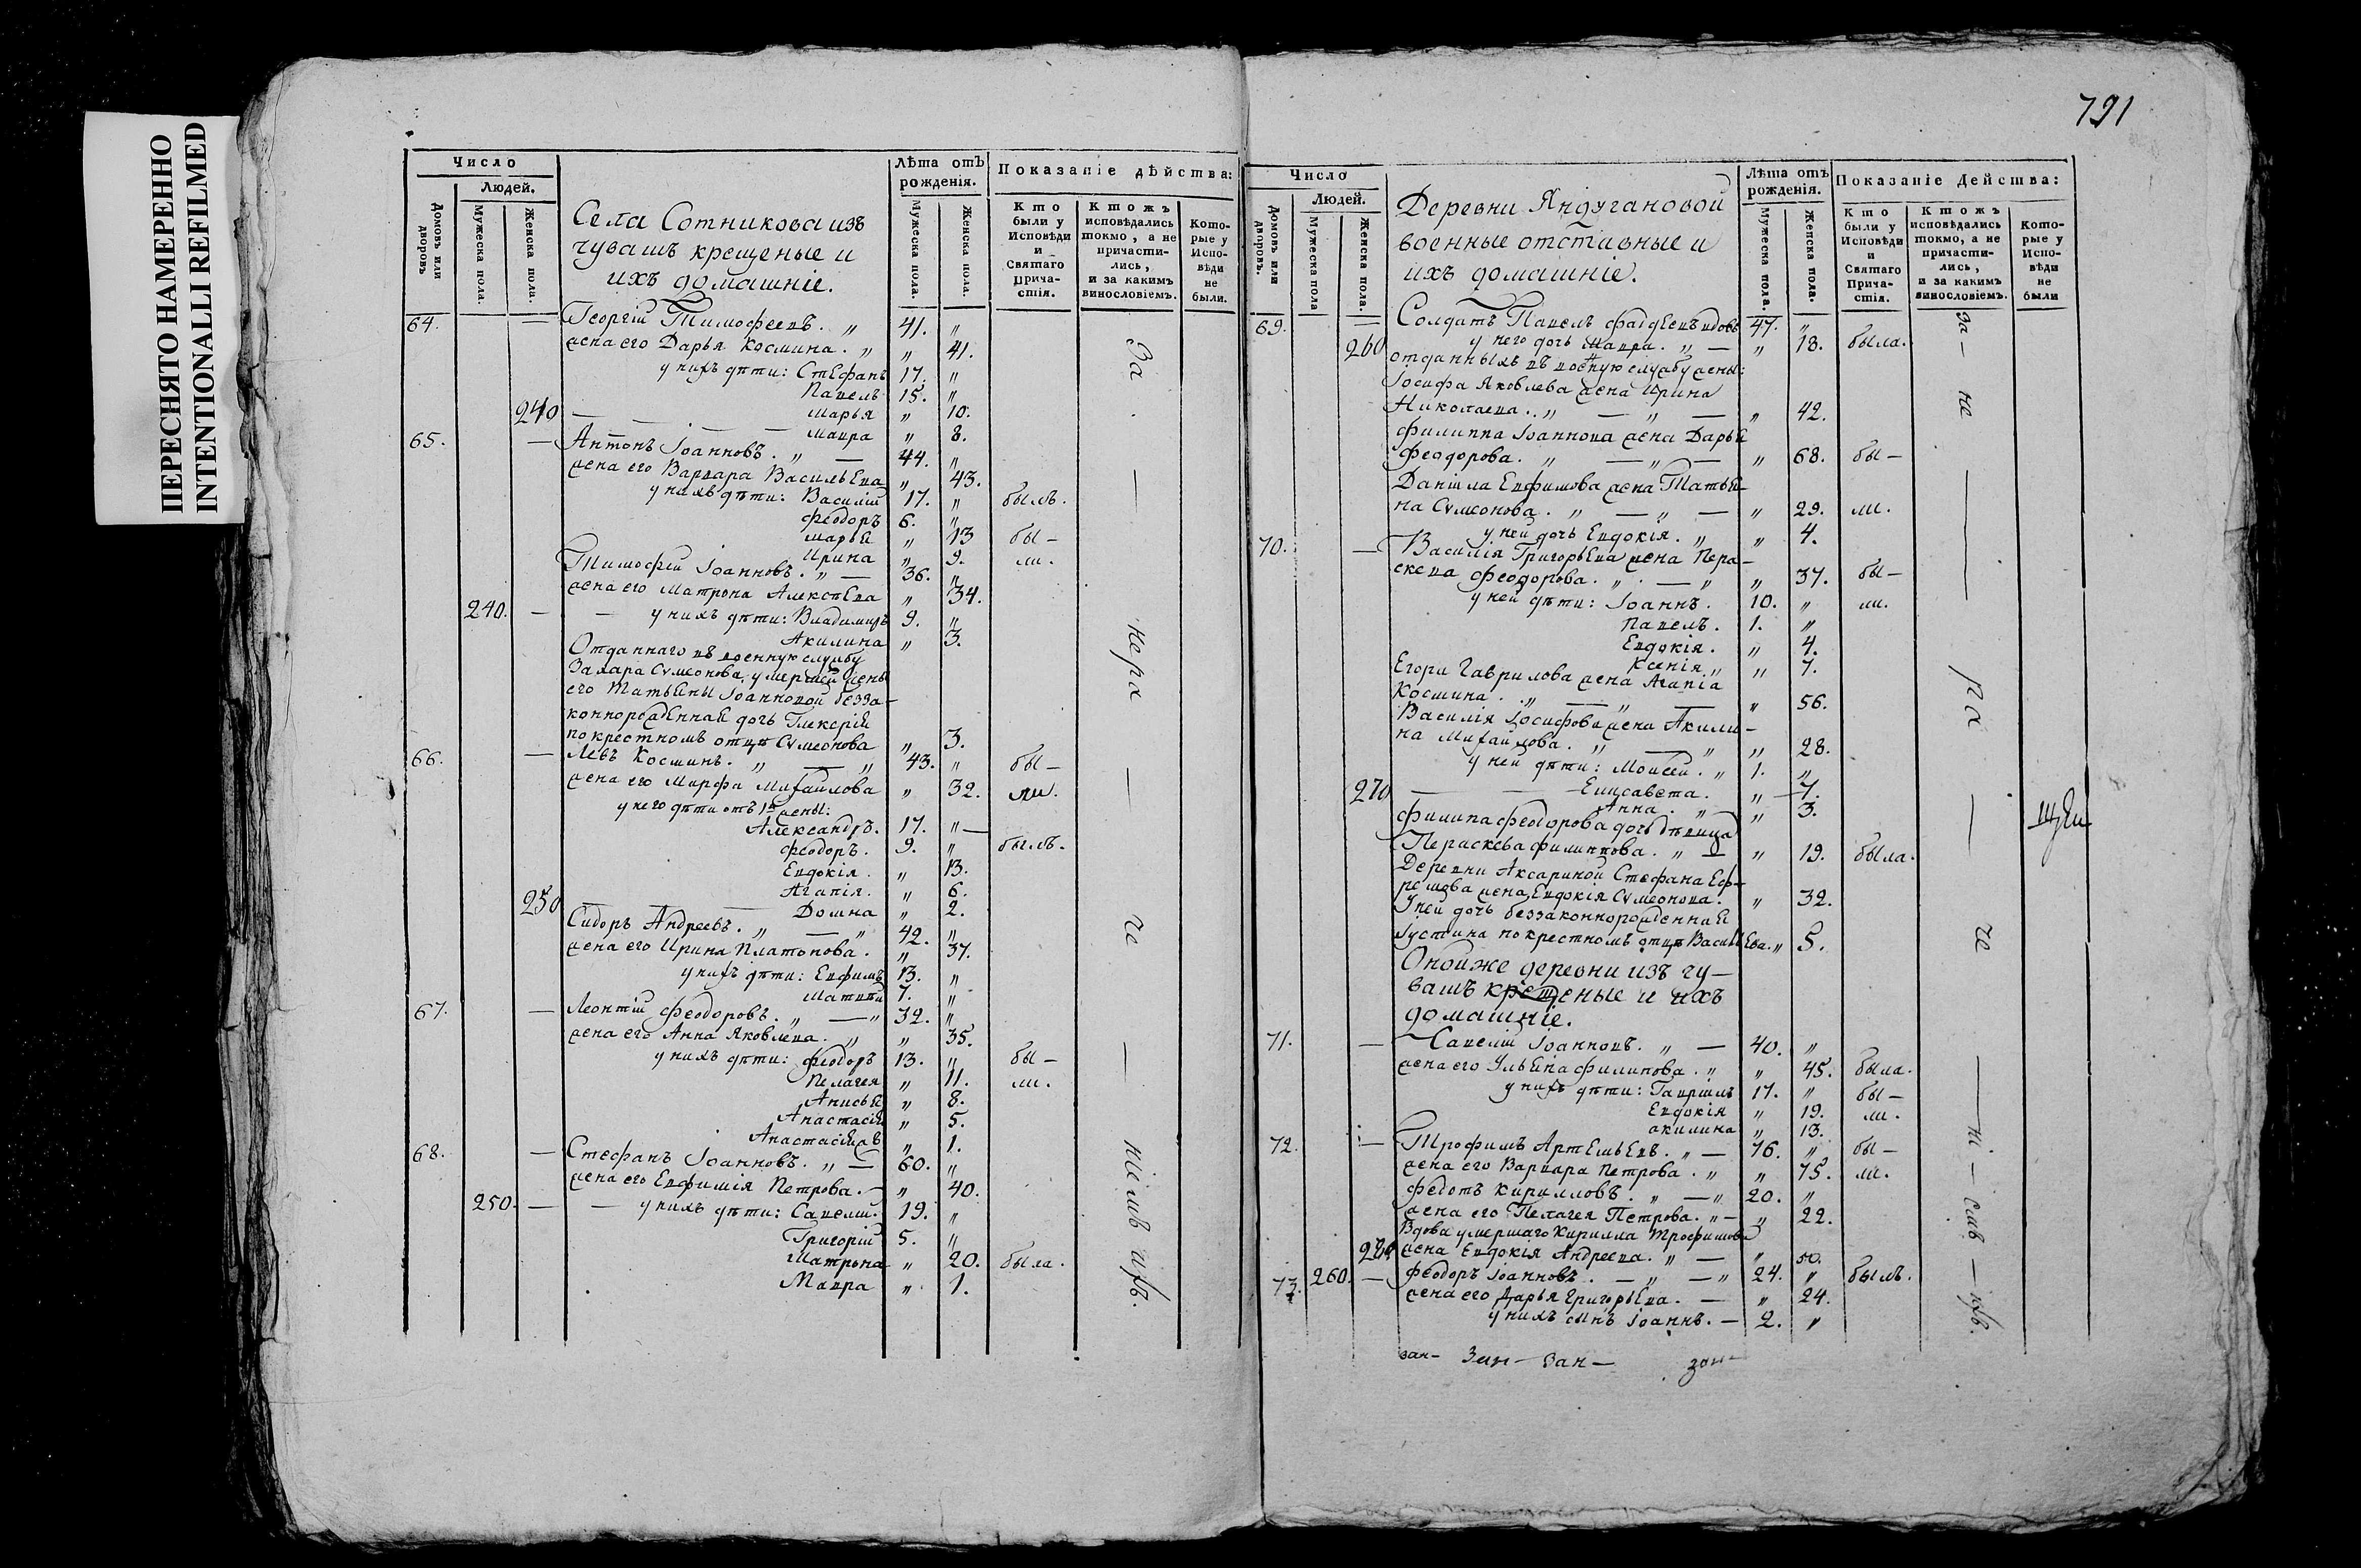 ПЕРЕСНЯТО НАМЕРЕННО
INTENTIONALLI REFILMED
791
Число
Людей.
Домовъ или дворовъ
Мужеска пола.
Женска пола.
Села Сотникова изъ
чувашъ крещеные и
ихъ домашніе.
Лѣта отъ рожденія.
Мужеска пола.
Женска пола.
Показаніе дѣйства:
Кто были у Исповѣди и Святаго Причастія.
Ктожъ исповѣдались токмо, а не причастились, и за какимъ винословіемъ.
Которые у Исповѣди не были.
64. — Георгій Тимофеевъ. „ 41. „
жена его Дарья Космина. „ „ 41.
у нихъ дѣти: Стефанъ 17. „
Павелъ 15. „
240 — Марья „ 10.
Мавра „ 8.
65. — Антонъ Іоанновъ. „ — 44. „
жена его Варвара Васильева „ 43.
у нихъ дѣти: Василій 17. „ былъ.
Феодоръ 6. „
Марья „ 13 бы-
Ирина „ 9. ли.
Тимофей Іоанновъ. „ — 36. „
жена его Матрона Алексѣева „ 34.
240. — — у нихъ дѣти: Владимиръ 9. „
Акилина „ 3.
Отданнаго въ военную службу
Захара Сѵмеонова, умершей жены
его Татьяны Іоанновой безза-
коннорожденная дочь Гликерія
по крестномъ отцѣ Сѵмеонова „ 3.
66. — Левъ Косминъ. „ — „ 43. „ бы-
жена его Марфа Михайлова „ 32. ли.
у него дѣти отъ 1й жены:
Александръ. 17. „ —
Феодоръ. 9. „ былъ.
Евдокія. „ 13.
Агапія. „ 6.
250 — — Домна „ 2.
Сидоръ Андреевъ. „ — „ 42. „
жена его Ирина Платонова. „ 37.
у нихъ дѣти: Евфимъ 13. „
Матвей 7. „
67. — Леонтій Феодоровъ. „ — „ 32. „
жена его Анна Яковлева. „ „ 35.
у нихъ дѣти: Феодоръ 13. „ бы-
Пелагея „ 11. ли.
Анисья „ 8.
Анастасія „ 5.
Анастасія „ 1.
68. — Стефанъ Іоанновъ. „ — 60. „
жена его Евфимія Петрова. — „ 40.
250. — — у нихъ дѣти: Савелій. 19. „
Григорій 5. „
Матрона „ 20. была.
Мавра „ 1.
За — нера — че — ніемъ
Число
Людей.
Домовъ или дворовъ.
Мужеска пола
Женска пола.
Деревни Яндугановой
военные отставные и
ихъ домашніе.
Лѣта отъ рожденія.
Мужеска пола.
Женска пола.
Показаніе Действа:
Кто были у Исповѣди и Святаго Причастія.
Ктожъ исповѣдались токмо, а не причастились, и за какимъ винословіемъ.
Которые у Исповѣди не были
69. — Солдатъ Павелъ Фадѣевъ вдовъ 47. „
260 у него дочь Мавра. „ — „ 18. была.
отданныхъ въ военную службу жены:
Іосифа Яковлева жена Ирина
Николаева. „ — „ — „ 42.
Филиппа Іоаннова жена Дарья
Феодорова. „ — „ — „ 68. бы-
Даніила Евфимова жена Татья-
на Сѵмеонова. „ — „ — „ 29. ли.
у ней дочь Евдокія. „ „ 4.
70. — Василія Григорьева жена Пера-
скева Феодорова. „ — „ „ 37. бы-
у ней дѣти: Іоаннъ. 10. „ ли.
Павелъ. 1. „
Евдокія. „ 4.
Ксенія „ „ 7.
Егора Гаврилова жена Агапіа
Космина. „ — „ — „ 56.
Василія Іосифова жена Акили-
на Михайлова. „ — „ „ 28.
у ней дѣти: Моисей. „ 1. „
270 — — Елисавета. „ 7.
Анна. „ „ 3.
Филипа Феодорова дочь дѣвица
Пераскева Филиппова. „ — „ 19. была.
Деревни Аксариной Стефана Еф-
ремова жена Евдокія Сѵмеонова. „ 32.
У ней дочь беззаконнорожденная
Іустина по крестномъ отцѣ Васильева. „ 5.
Оной же деревни изъ чу-
вашъ крещеные и ихъ
домашніе.
71. — Савелій Іоанновъ. „ — 40. „
жена его Ульяна Филипова. „ „ 45. была.
у нихъ дѣти: Гавріилъ 17. „ бы-
Евдокія „ 19. ли.
акилина „ 13.
72. — Трофимъ Артемьевъ. „ — 76. „ бы-
жена его Варвара Петрова. „ „ 75. ли.
Федотъ Кирилловъ. „ — „ 20. „
жена его Пелагея Петрова. „ — „ 22.
Вдова умершаго Кирилла Трофимова
280 жена Евдокія Андреева. „ — „ 50.
73. 260. — Феодоръ Іоанновъ. — „ — „ 24. „ былъ.
жена его Дарья Григорьева. — „ 24.
у нихъ сынъ Іоаннъ. — 2. „
за — не — ра — че — ні — емъ
зан- Зан- Зан- зан-